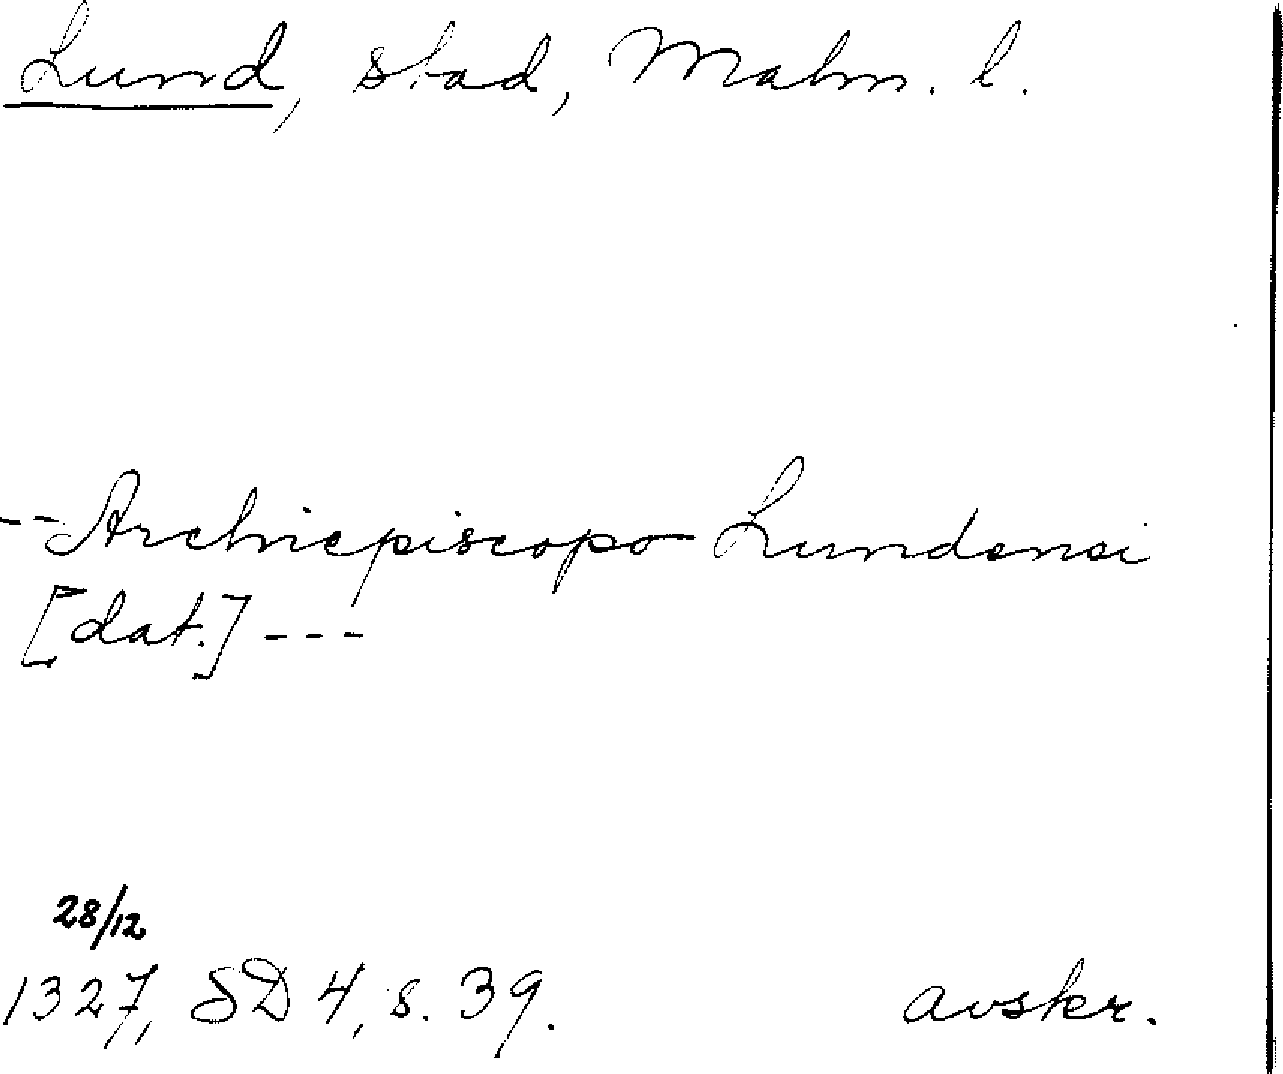 Lund, stad, Malm. l.
-- Archiepiscopo Lundensi
[dat.] ---
28/12
1327, SD 4, s. 39. avskr.